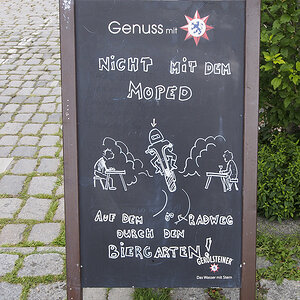 Genuss mit
NICHT MIT DEM
MOPED
AUF DEM RADWEG
DURCH DEN
BIERGARTEN!
GEROLSTEINER
Das Wasser mit Stern